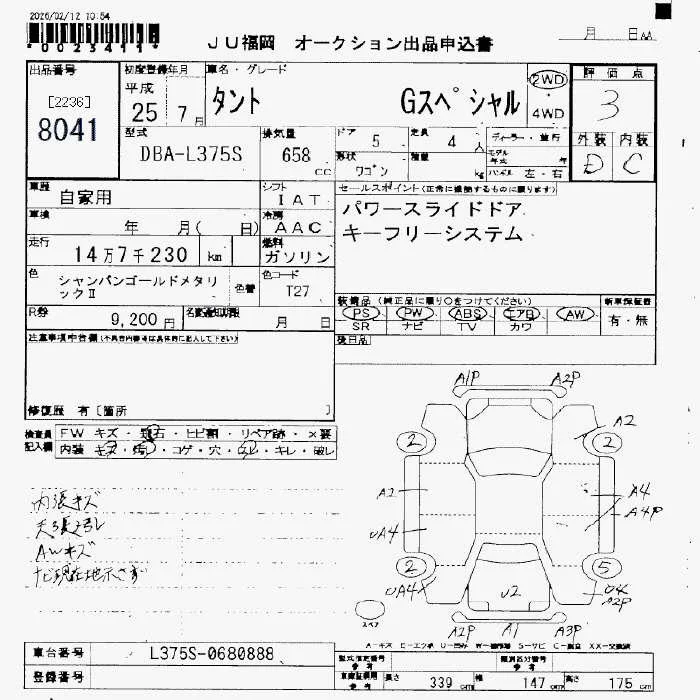 2026/02/12 10:54
*00234111*
JU福岡 オークション出品申込書
月 日AA
出品番号
[2236]
8041
初度登録年月
平成
25 7月
車名・グレード
タント Gスペシャル
2WD
4WD
評価点
3
外装 内装
D C
型式
DBA-L375S
排気量
658
cc
ドア
5
定員
4
人
形状
ワゴン
積量
kg
ディーラー・並行
モデル
年式 年
ハンドル 左・右
車歴
自家用
シフト
IAT
車検
年 月( 日)
冷房
AAC
走行
14万7千230 km
燃料
ガソリン
色
シャンパンゴールドメタリ
ックⅡ
色替
色コード
T27
R券
9,200円
名変通知期限
月 日
セールスポイント(正常に機能するものに限ります)
パワースライドドア
キーフリーシステム
装備品(純正品に限り○をつけてください)
PS PW ABS エアB AW
SR ナビ TV カワ
新車保証書
有・無
後日品
注意事項申告欄(不具合内容等は具体的に記入して下さい)
修復歴 有[箇所 ]
検査員
記入欄
FW キズ・飛石・ヒビ割・リペア跡・×要
内装 キズ・汚れ・コゲ・穴・ハレ・キレ・破レ
内張キズ
天張ヨゴレ
AWキズ
A1P A2P
A2
2 2
A1
A4
A4P
UA4
2 5
UA4
U2
U4
A2P
スペア
A2P A1 A3P
A=キズ E=エクボ U=凹み W=補修跡 S=サビ C=腐食 XX=交換済
車台番号
L375S-0680888
登録番号
型式指定番号
参考
類別区分番号
参考
車検証費用
参考
長さ 339 cm 幅 147 cm 高さ 175 cm